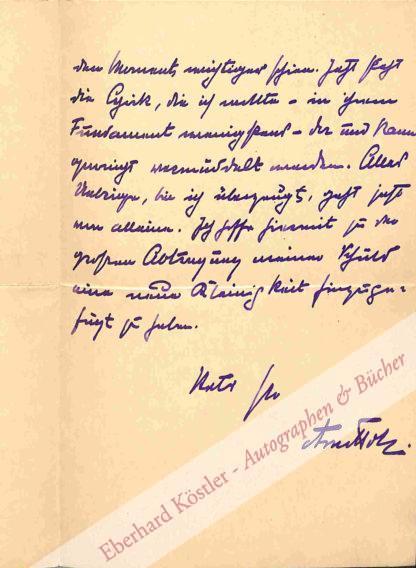 dem Moment wichtiger schien. Jetzt steht
die Lyrik, die ich wollte – in ihrem
Fundament wenigstens – da und kann
verwandelt werden. Alles
Uebrige, bin ich überzeugt, geht jetzt
von alleine. Ich hoffe hiermit zu der
großen Abtragung meiner Schuld
eine neue Kleinigkeit hinzuge-
fügt zu haben.
Stets Ihr
Arno Holz.
Eberhard Köstler - Autographen & Bücher